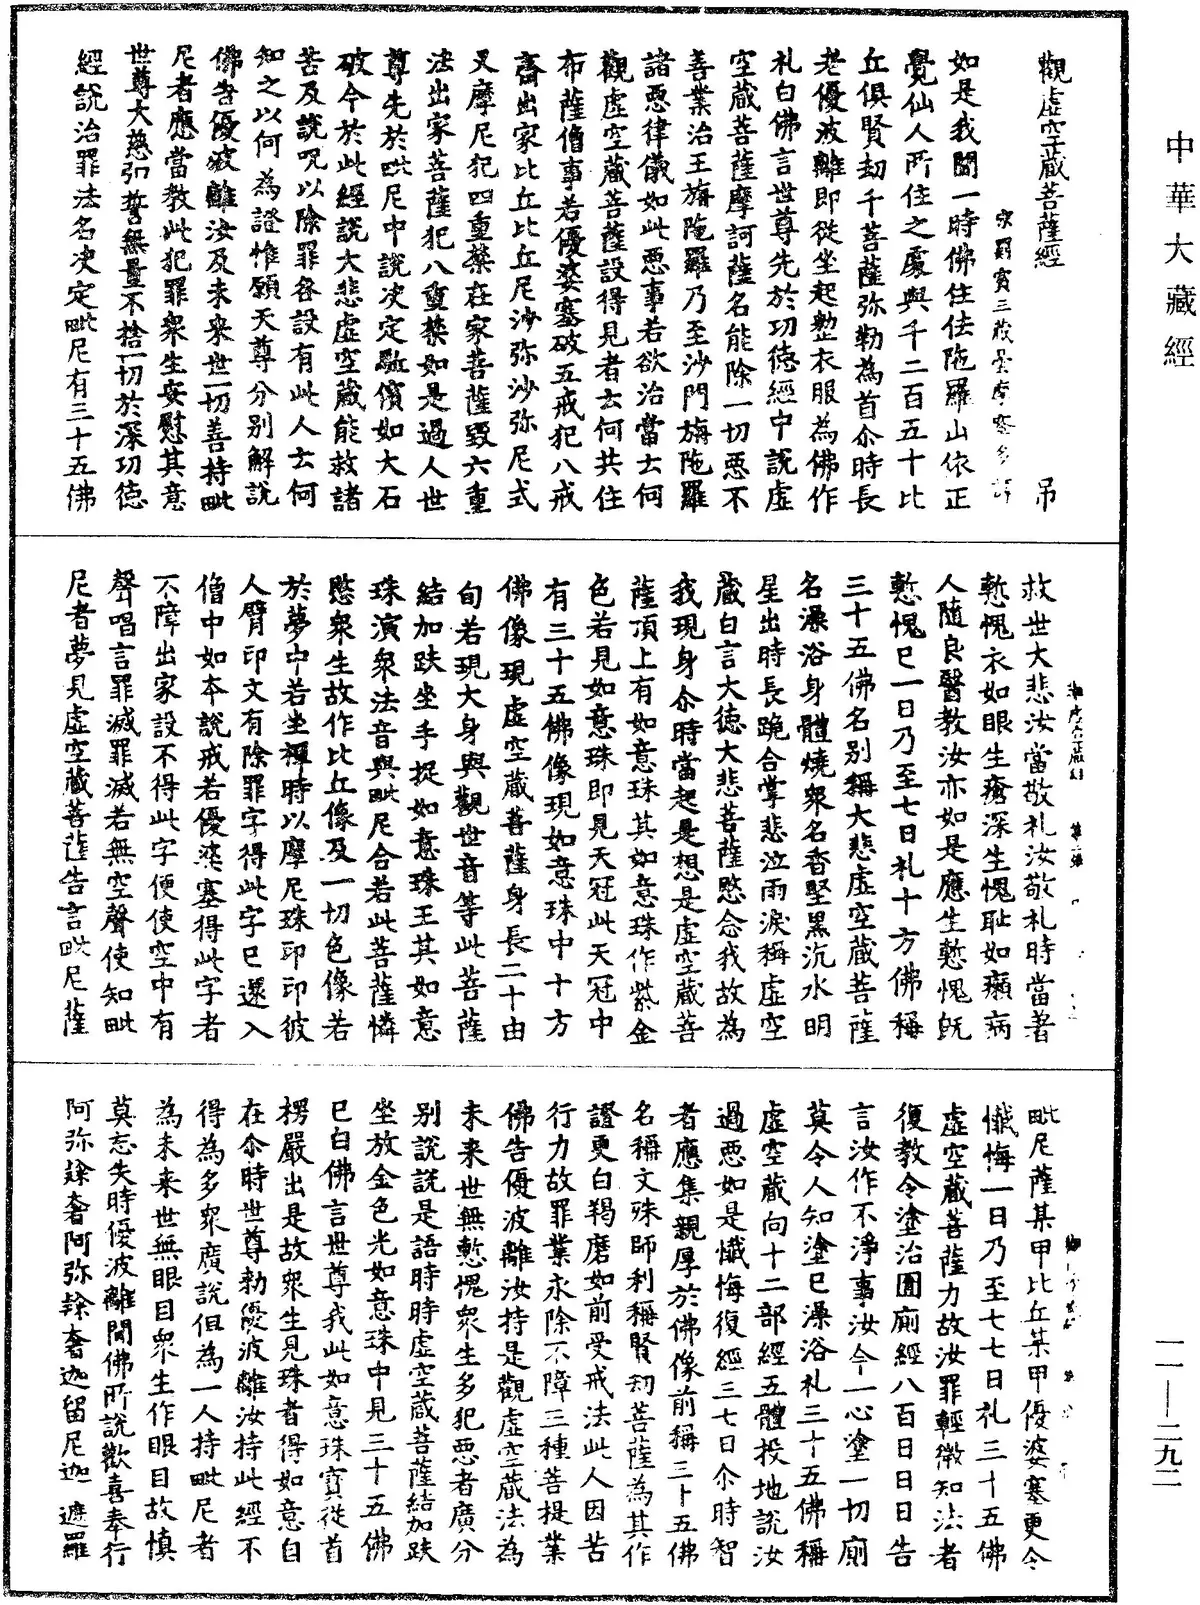 中華大藏經
觀虛空藏菩薩經 吊
宋罽賓三藏曇摩蜜多譯
如是我聞一時佛住佉陁羅山依正
覺仙人所住之處與千二百五十比
丘俱賢劫千菩薩弥勒為首尒時長
老優波離即從坐起整衣服為佛作
礼白佛言世尊先於功德經中說虛
空藏菩薩摩訶薩名能除一切惡不
善業治王旃陁羅乃至沙門旃陁羅
諸惡律儀如此惡事若欲治當云何
觀虛空藏菩薩設得見者云何共住
布薩僧事若優婆塞破五戒犯八戒
齋出家比丘比丘尼沙弥沙弥尼式
叉摩尼犯四重禁在家菩薩毀六重
法出家菩薩犯八重禁如是過人世
尊先於毗尼中說决定驅儐如大石
破今於此經說大悲虛空藏能救諸
苦及說呪以除罪咎設有此人云何
知之以何為證惟願天尊分別解說
佛告優波離汝及未來世一切善持毗
尼者應當教此犯罪衆生安慰其意
世尊大慈弘誓無量不捨一切於深功德
經說治罪法名决定毗尼有三十五佛
救世大悲汝當敬礼汝敬礼時當著
慙愧衣如眼生瘡深生愧耻如癩病
人隨良醫教汝亦如是應生慙愧旣
慙愧已一日乃至七日礼十方佛稱
三十五佛名別稱大悲虛空藏菩薩
名澡浴身體燒衆名香堅黑沉水明
星出時長跪合掌悲泣雨淚稱虛空
藏白言大德大悲菩薩愍念我故為
我現身尒時當起是想是虛空藏菩
薩頂上有如意珠其如意珠作紫金
色若見如意珠即見天冠此天冠中
有三十五佛像現如意珠中十方
佛像現虛空藏菩薩身長二十由
旬若現大身與觀世音等此菩薩
結加趺坐手捉如意珠王其如意
珠演衆法音與毗尼合若此菩薩憐
愍衆生故作比丘像及一切色像若
於夢中若坐禪時以摩尼珠印印彼
人臂印文有除罪字得此字已還入
僧中如本說戒若優婆塞得此字者
不障出家設不得此字便使空中有
聲唱言罪滅罪滅若無空聲使知毗
尼者夢見虛空藏菩薩告言毗尼薩
毗尼薩某甲比丘某甲優婆塞更令
懺悔一日乃至七七日礼三十五佛
虛空藏菩薩力故汝罪輕微知法者
復教令塗治圊廁經八百日日日告
言汝作不淨事汝今一心塗一切廁
莫令人知塗已澡浴礼三十五佛稱
虛空藏向十二部經五體投地說汝
過惡如是懺悔復經三七日尒時智
者應集親厚於佛像前稱三十五佛
名稱文殊師利稱賢劫菩薩為其作
證更白羯磨如前受戒法此人因苦
行力故罪業永除不障三種菩提業
佛告優波離汝持是觀虛空藏法為
未來世無慙愧衆生多犯惡者廣分
別說說是語時時虛空藏菩薩結加趺
坐放金色光如意珠中見三十五佛
已白佛言世尊我此如意珠寶從首
楞嚴出是故衆生見珠者得如意自
在尒時世尊勑優波離汝持此經不
得為多衆廣說但為一人持毗尼者
為未來世無眼目衆生作眼目故慎
莫忘失時優波離聞佛所說歡喜奉行
阿弥𨅖奢阿弥𨅖奢迦留尼迦 遮羅
一一—二九二